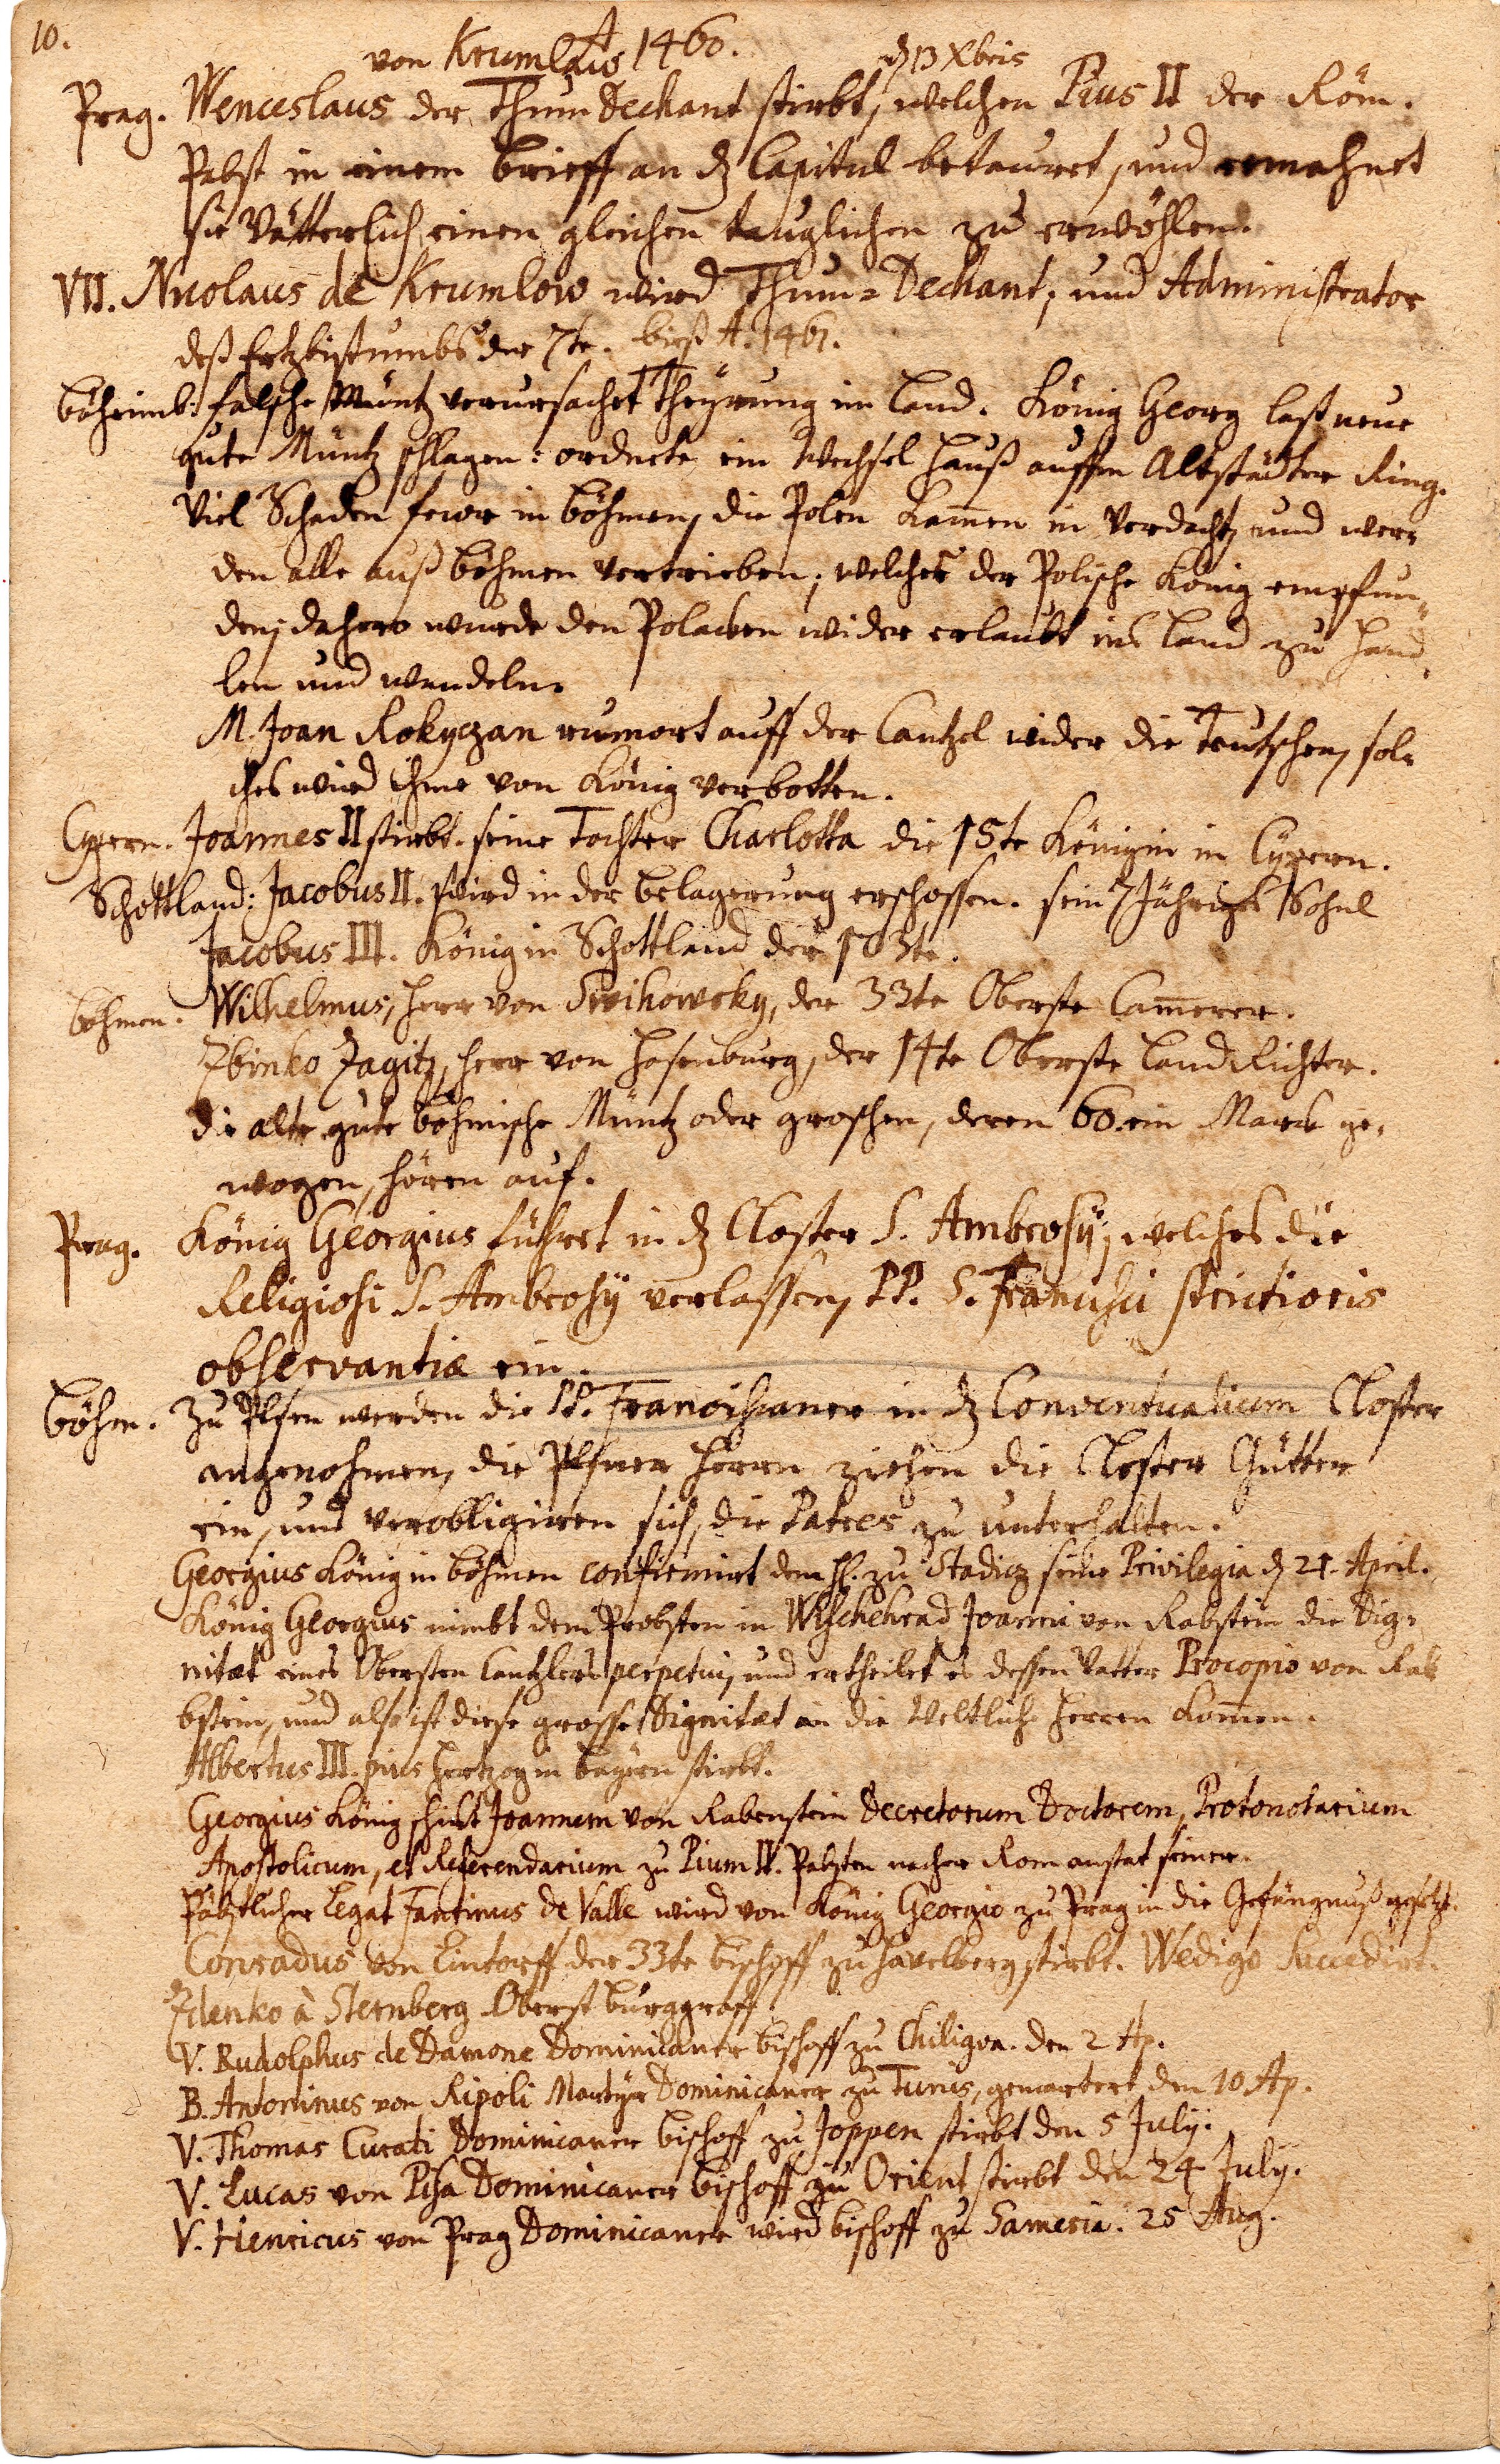 10.
von Krumlau A 1460. dz 13 Xbris
Prag. Wenceslaus der Thum Dechant stirbt, welchen Pius II der Röm.
Pabst in einem brieff an dz Capitul betauret, und ermahnet
sie Vätterlich einen gleichen tauglichen zu erwöhlen.
VII. Nicolaus de Krumlow wird Thum-Dechant, und Administrator
deß Ertzbistumbs der 7te. bieß A. 1461.
böheimb: falsche Müntz verursachet Theÿrung im Land. König Georg last neue
gute Müntz schlagen: ordnete ein Wechsel Hauß auffm Altstädter Ring.
Viel Schaden fewr in böhmen, die Polen kamen in Verdacht, und wer-
den alle auß böhmen vertrieben; welches der Polische König empfun-
den; dahero wurde den Polacken wider erlaubt ins Land zu Hand-
len und wandeln.
M. Joan Rokyczan rumort auff der Cantzel wider die Teutschen, sol-
ches wird ihme von König verbotten.
Cypern. Joannes II stirbt. seine Tochter Charlotta die 15te Königin in Cypern.
Schottland: Jacobus II. wird in der belagerung erschossen. sein 7 Jähriges Sohnl
Jacobus III. König in Schottland der 103te.
böhmen. Wilhelmus, Herr von Swihowsky, der 33te Oberste Camerer.
Zbinko Zagitz, Herr von Hasenburg, der 14te Oberste LandRichter.
die alte gute böhmische Müntz oder groschen, deren 60. ein Marck ge-
wogen, hören auf.
Prag. König Georgius führet in dz Closter S. Ambrosÿ, welches die
Religiosi S. Ambrosÿ verlassen, PP. S. Francisci strictioris
observantiæ ein.
böhm. Zu Pilsen werden die PP. Franciscaner in dz Conventualium Closter
angenohmen, die Pilsner Herrn ziehen die Closter Gütter
ein, und verobligiren sich, die Patres zu unterhalten.
Georgius König in böhmen confirmirt dem H. zu Stadicz seine Privilegia dz 21. April.
König Georgius nimbt dem Probsten in Wischehrad Joanni von Rabstein die Dig-
nitæt eines Obersten Cantzlers perpetui, und ertheilet es dessen Vatter Procopio von Rab
bstein, und also ist diese grosse Dignitæt an die Weltliche Herren komen.
Albertus III. pius Hertzog in bayern stirbt.
Georgius König schickt Joannem von Rabenstein Decretorum Doctorem, Protonotarium
Apostolicum, et Referendarium zu Pium II. Pabsten nacher Rom anstat seiner.
Päbstlicher Legat Fantinus de Valle wird von König Georgio zu Prag in die Gefängnuß gesetzt.
Conradus von Lintorff der 33te bischoff zu Havelberg stirbt. Wedigo Succedirt.
Zdenko à Sternberg Oberst burggraff.
V. Rudolphus de Damone Dominicaner bischoff zu Chiligva. den 2 Ap.
B. Antoninus von Ripoli Martÿr Dominicaner zu Tunis, gemartert den 10 Ap.
V. Thomas Curati Dominicaner bischoff zu Joppen stirbt den 5 Julÿ.
V. Lucas von Pisa Dominicaner bischoff zu Orient stirbt den 24 Julÿ.
V. Henricus von Prag Dominicaner wird bischoff zu Sameria. 25 Aug.